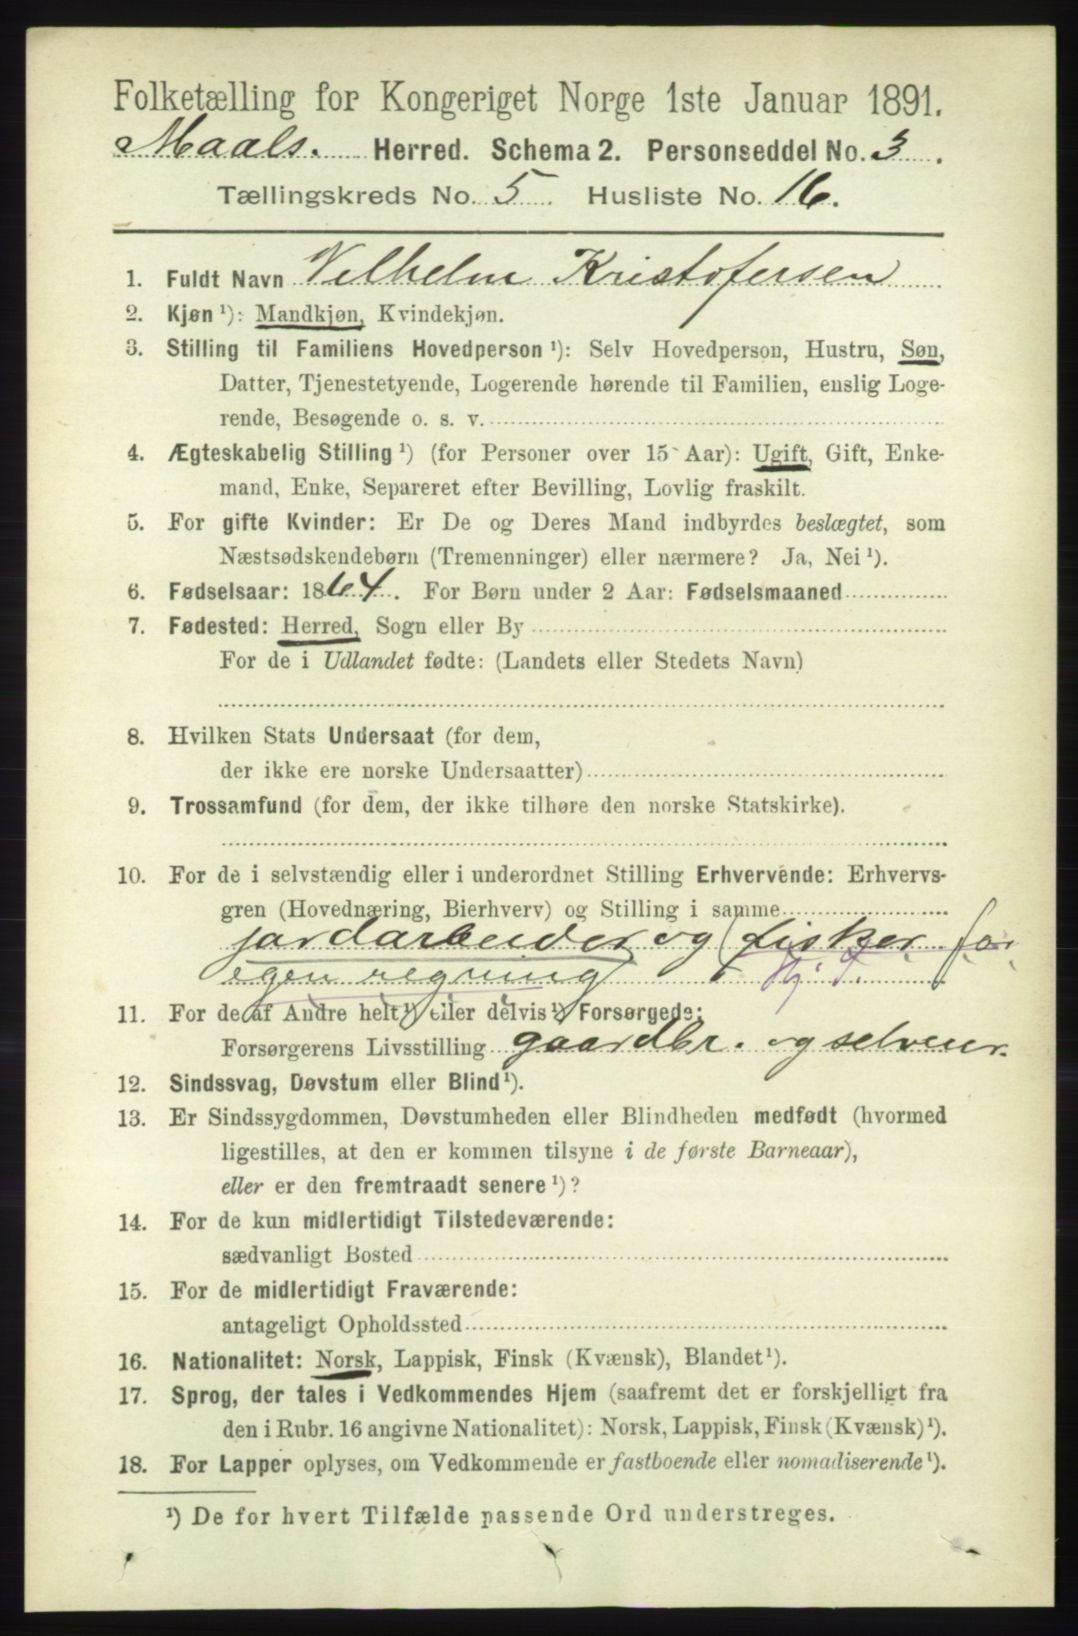 Folketælling for Kongeriget Norge 1ste Januar 1891.
Maals. Herred. Schema 2. Personseddel No. 3.
Tællingskreds No. 5. Husliste No. 16.
1. Fuldt Navn Vilhelm Kristofersen
2. Kjøn ¹): Mandkjøn, Kvindekjøn.
3. Stilling til Familiens Hovedperson ¹): Selv Hovedperson, Hustru, Søn,
Datter, Tjenestetyende, Logerende hørende til Familien, enslig Loge-
rende, Besøgende o. s. v.
4. Ægteskabelig Stilling ¹) (for Personer over 15 Aar): Ugift, Gift, Enke-
mand, Enke, Separeret efter Bevilling, Lovlig fraskilt.
5. For gifte Kvinder: Er De og Deres Mand indbyrdes beslægtet, som
Næstsødskendebørn (Tremenninger) eller nærmere? Ja, Nei ¹).
6. Fødselsaar: 1864. For Børn under 2 Aar: Fødselsmaaned
7. Fødested: Herred, Sogn eller By
For de i Udlandet fødte: (Landets eller Stedets Navn)
8. Hvilken Stats Undersaat (for dem,
der ikke ere norske Undersaatter)
9. Trossamfund (for dem, der ikke tilhøre den norske Statskirke).
10. For de i selvstændig eller i underordnet Stilling Erhvervende: Erhvervs-
gren (Hovednæring, Bierhverv) og Stilling i samme
jordarbeider og (fisker for
egen regning)
11. For de af Andre helt ¹) eller delvis ¹) Forsørgede:
Forsørgerens Livsstilling gaardbr. og selveier.
12. Sindssvag, Døvstum eller Blind ¹).
13. Er Sindssygdommen, Døvstumheden eller Blindheden medfødt (hvormed
ligestilles, at den er kommen tilsyne i de første Barneaar),
eller er den fremtraadt senere ¹)?
14. For de kun midlertidigt Tilstedeværende:
sædvanligt Bosted
15. For de midlertidigt Fraværende:
antageligt Opholdssted
16. Nationalitet: Norsk, Lappisk, Finsk (Kvænsk), Blandet ¹).
17. Sprog, der tales i Vedkommendes Hjem (saafremt det er forskjelligt fra
den i Rubr. 16 angivne Nationalitet): Norsk, Lappisk, Finsk (Kvænsk) ¹).
18. For Lapper oplyses, om Vedkommende er fastboende eller nomadiserende ¹).
¹) De for hvert Tilfælde passende Ord understreges.